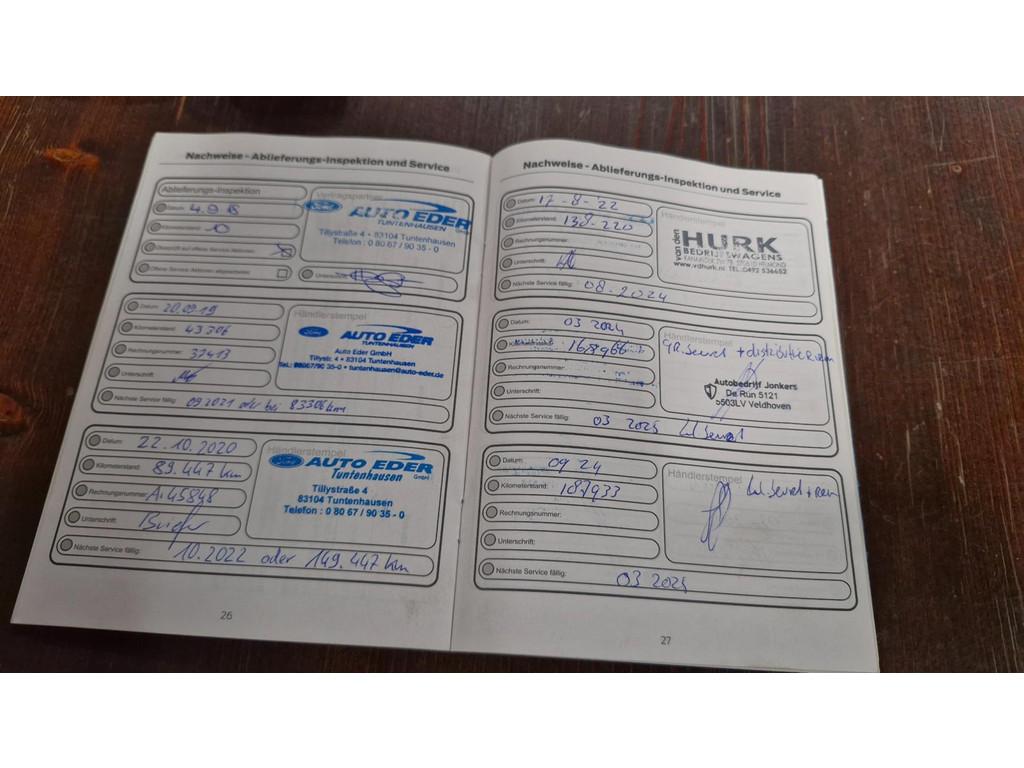 Nachweise - Ablieferungs-Inspektion und Service
Ablieferungs-Inspektion
Datum: 4.9.18
Vertragspartner
Ford AUTO EDER GmbH
TUNTENHAUSEN
Tillystraße 4 • 83104 Tuntenhausen
Telefon : 0 80 67 / 90 35 - 0
10
Offene Service Aktionen
Unterschrift:
Datum: 20.09.19
Kilometerstand: 43306
Rechnungsnummer: 37413
Unterschrift:
Nächste Service fällig: 09.2021 oder bei 83306 km
Händlerstempel
Ford AUTO EDER
TUNTENHAUSEN
Auto Eder GmbH
Tillystr. 4 • 83104 Tuntenhausen
Tel.: 08067/90 35-0 • tuntenhausen@auto-eder.de
Datum: 22.10.2020
Kilometerstand: 89.447 km
Rechnungsnummer: A.45848
Unterschrift:
Nächste Service fällig: 10.2022 oder 149.447 km
Händlerstempel
Ford AUTO EDER GmbH
Tuntenhausen
Tillystraße 4
83104 Tuntenhausen
Telefon : 0 80 67 / 90 35 - 0
26
Nachweise - Ablieferungs-Inspektion und Service
Datum: 17-8-22
Kilometerstand: 138-220
Rechnungsnummer:
Unterschrift:
Nächste Service fällig: 08-2024
Händlerstempel
van den HURK
BEDRIJFSWAGENS
www.vdhurk.nl TEL.:0492 536652
Datum: 03 2024
Kilometerstand: 168966
Rechnungsnummer:
Unterschrift:
Nächste Service fällig: 03 2025
Händlerstempel
Autobedrijf Jonkers
De Run 5121
5503LV Veldhoven
Datum: 09 24
Kilometerstand: 187933
Rechnungsnummer:
Unterschrift:
Nächste Service fällig: 03 2025
Händlerstempel
27